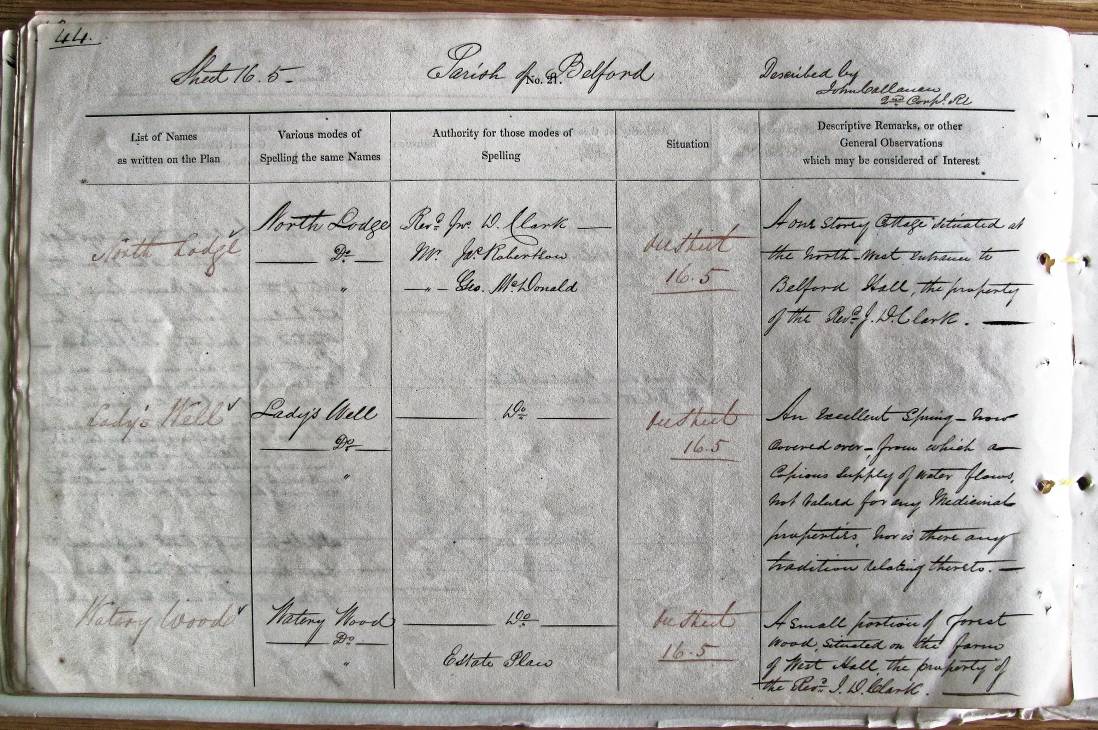 44.
Sheet 16.5 Parish of Belford Described by
No. 21. John Callanan
2nd Corpl. RE
List of Names
as written on the Plan
Various modes of
Spelling the same Names
Authority for those modes of
Spelling
Situation
Descriptive Remarks, or other
General Observations
which may be considered of Interest
North Lodge
North Lodge
Do.
"
Revd. Jno. D. Clark
Mr. Jas. Robertson
" Geo. McDonald
See Sheet
16.5
A one Storey Cottage situated at
the North-West entrance to
Belford Hall, the property
of the Revd. J. D. Clark.
Lady's Well
Lady's Well
Do.
"
Do.
See Sheet
16.5
An excellent Spring - now
covered over - from which a
Copious supply of water flows,
not valued for any Medicinal
properties, nor is there any
tradition relating thereto.
Watery Wood
Watery Wood
Do.
"
Do.
Estate Plan
See Sheet
16.5
A small portion of Forest
Wood, situated on the farm
of West Hall, the property of
the Revd. J. D. Clark.